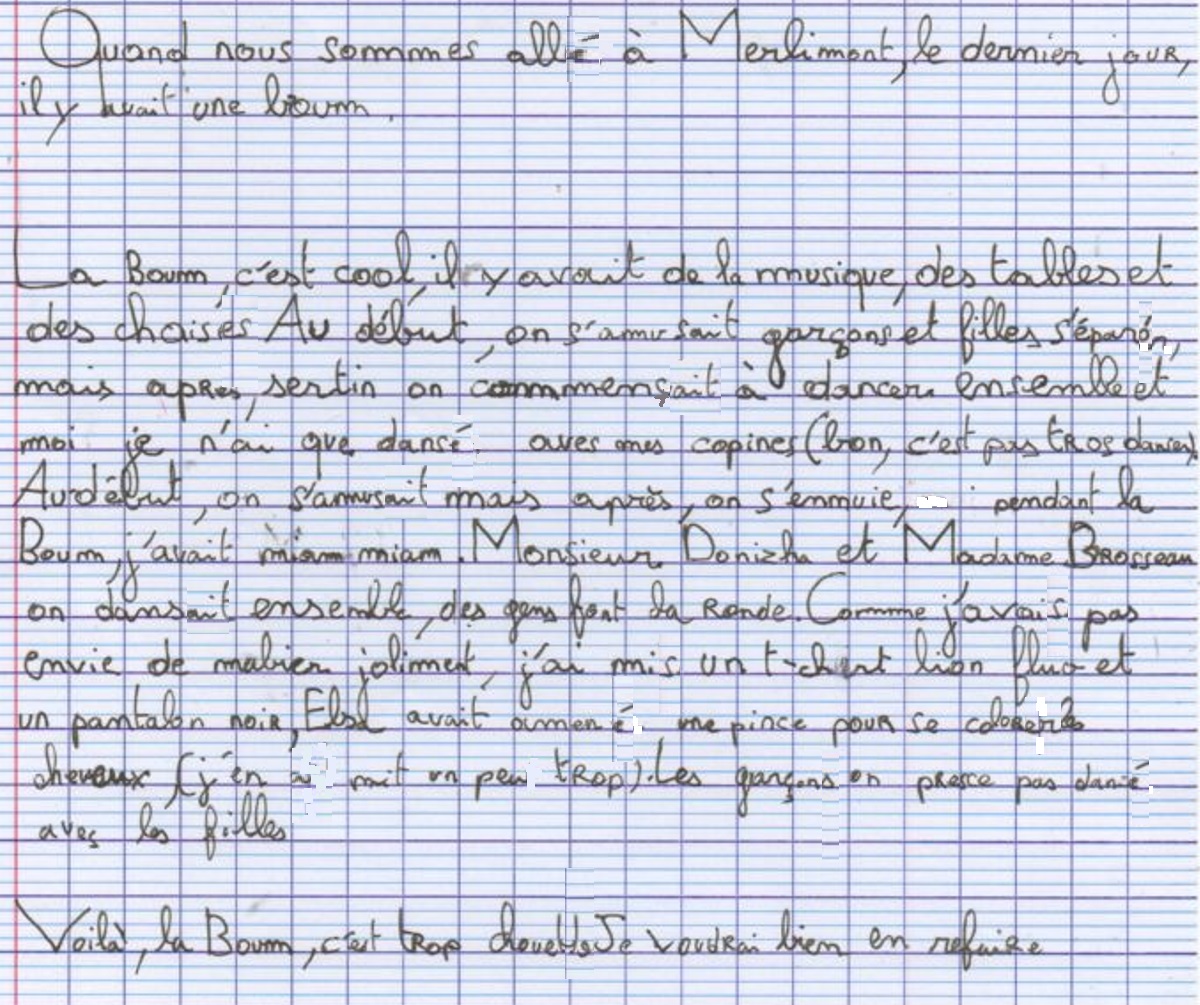 Quand nous sommes allé à Merlimont, le dernier jour,
il y avait une boum.
La Boum, c'est cool, il y avait de la musique, des tables et
des chaises Au début, on s'amusait garçons et filles s'éparé,
mais apres, sertin on commmençait à dancer ensemble et
moi je n'ai que dansé aves mes copines (bon, c'est pas trop danser).
Au début, on s'amusait mais après, on s'ennuie, pendant la
Boum, j'avait miam miam. Monsieur Donizha et Madame Brosseau
on dansait ensemble, des gens font la ronde. Comme j'avais pas
envie de joliment, j'ai mis un t-chert lion fluo et
un pantalon noir, Elsa avait amené une pince pour se colorer les
cheveux (j'en ai mit un peu trop). Les garçons on presce pas dansé
aveç les filles
Voilà, la Boum, c'est trop chouette Je voudrai bien en refaire